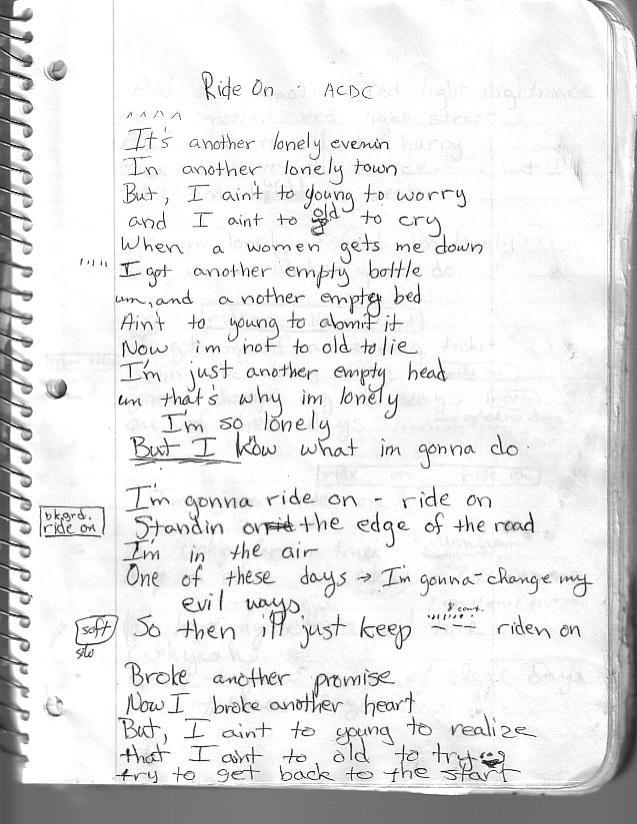 Ride On . ACDC
^^^^
It's another lonely evenin
In another lonely town
But, I ain't to young to worry
and I aint to old to cry
When a women gets me down
I got another empty bottle
um, and a nother empty bed
Ain't to young to abmit it
Now im not to old to lie
I'm just another empty head
um that's why im lonely
I'm so lonely
But I know what im gonna do.
I'm gonna ride on - ride on
bkgrd. ride on
Standin on the edge of the road
I'm in the air
One of these days → I'm gonna - change my
evil ways
8 count.
soft So then i'll just keep --- riden on
Broke another promise
Now I broke another heart
But, I aint to young to realize
that I aint to old to try
try to get back to the start